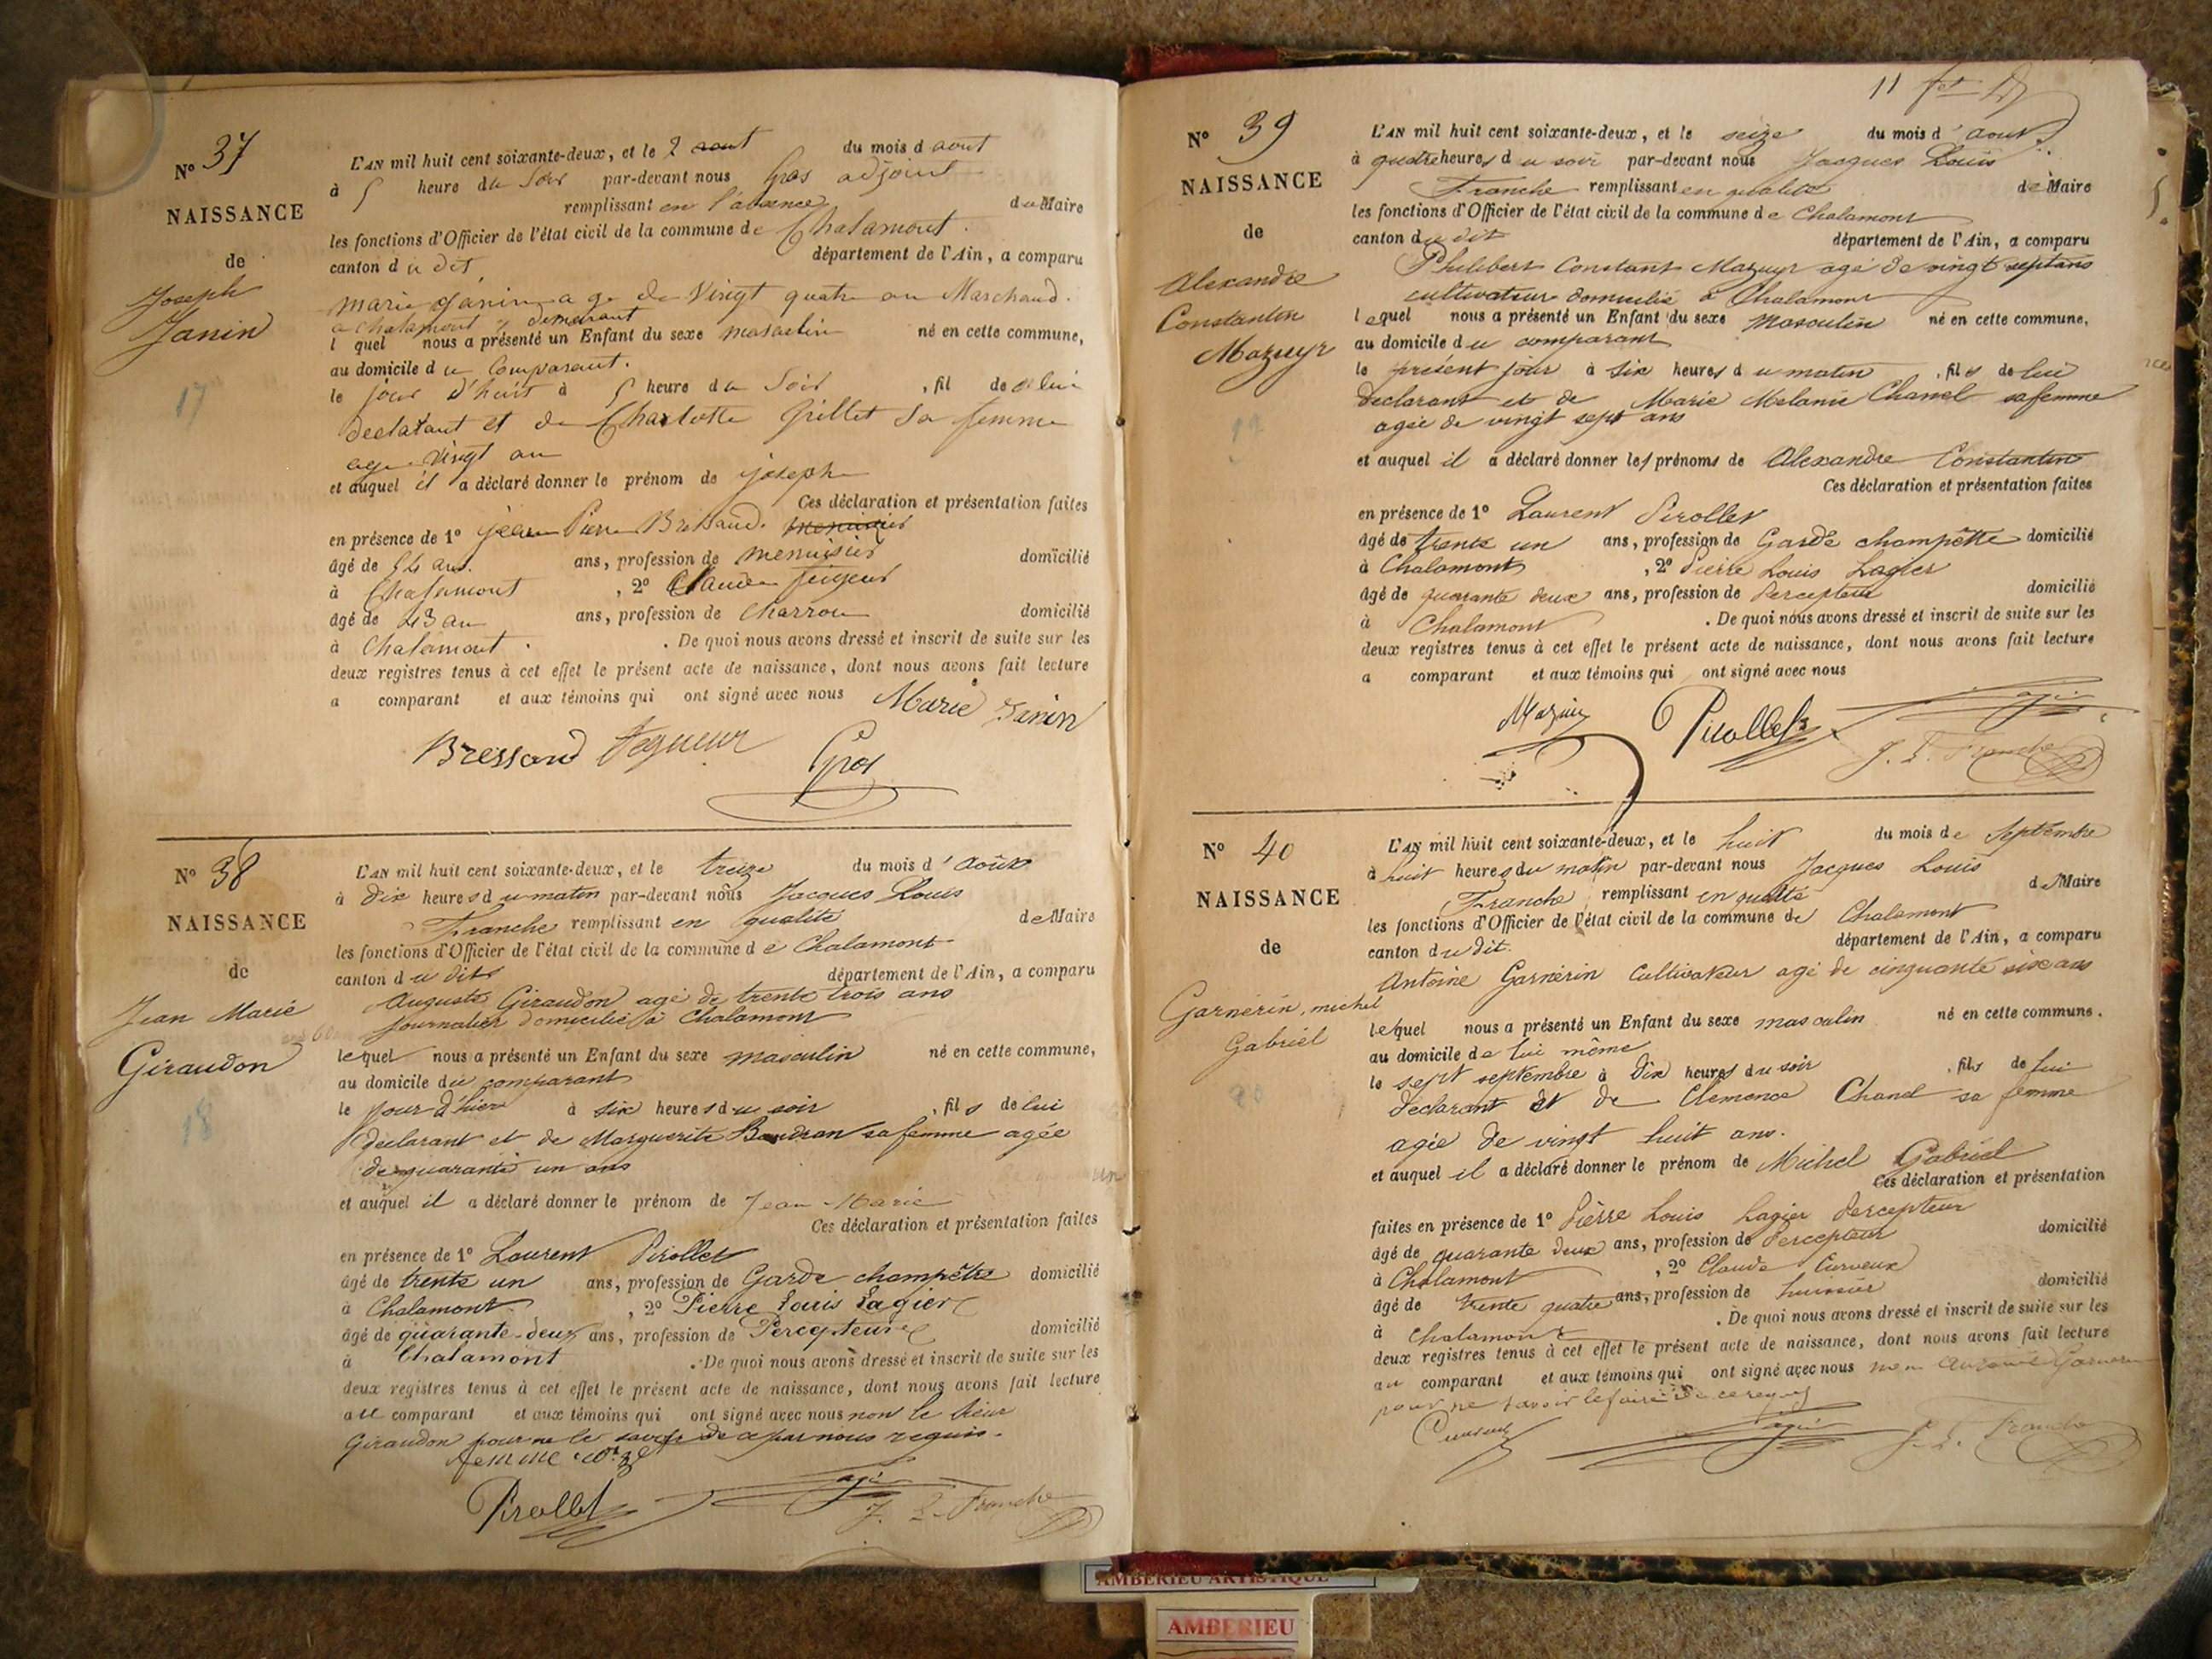 N° 37
NAISSANCE
de
Joseph
Janin
17
L'AN mil huit cent soixante-deux, et le 2 aout du mois d aout
à 5 heure du Soir par-devant nous Gros adjoint
remplissant en l'absence du Maire
les fonctions d'Officier de l'état civil de la commune de Chalamont.
canton du dit département de l'Ain, a comparu
marie Janin age de Vingt quatre an Marchand.
a chalamont y demeurant
l quel nous a présenté un Enfant du sexe masculin né en cette commune,
au domicile du Comparant.
le jour d'huit à 5 heure du Soir, fil de lui
declarant et de Charlotte Grillet Sa femme
age Vingt an
et auquel il a déclaré donner le prénom de joseph
Ces déclaration et présentation faites
en présence de 1° jean Pierre Bressand. menuisier
âgé de 54 an. ans, profession de menuisier domicilié
à Chalamont, 2° Claude
âgé de 43 an ans, profession de Charron domicilié
à Chalamont. De quoi nous avons dressé et inscrit de suite sur les
deux registres tenus à cet effet le présent acte de naissance, dont nous avons fait lecture
a comparant et aux témoins qui ont signé avec nous Marie Janin
Bressand Gros
N° 38
NAISSANCE
de
Jean Marie
Giraudon
18
L'AN mil huit cent soixante-deux, et le treize du mois d'Août
à dix heures du matin par-devant nous Jacques Louis
Franche remplissant en qualité de Maire
les fonctions d'Officier de l'état civil de la commune de Chalamont
canton du dit département de l'Ain, a comparu
Auguste Giraudon agé de trente trois ans
Journalier domicilié à Chalamont
lequel nous a présenté un Enfant du sexe masculin né en cette commune,
au domicile du comparant
le jour d'hier à six heures du soir, fils de lui
declarant et de Marguerite Baudran sa femme agée
de quarante un ans
et auquel il a déclaré donner le prénom de Jean-Marie
Ces déclaration et présentation faites
en présence de 1° Laurent Pirollet
âgé de trente un ans, profession de Garde champêtre domicilié
à Chalamont, 2° Pierre Louis Lagier
âgé de quarante-deux ans, profession de Percepteur domicilié
à Chalamont. De quoi nous avons dressé et inscrit de suite sur les
deux registres tenus à cet effet le présent acte de naissance, dont nous avons fait lecture
au comparant et aux témoins qui ont signé avec nous non le sieur
Giraudon pour ne le savoir de ce par nous requis.
Pirollet Lagier J. L. Franche
11
N° 39
NAISSANCE
de
Alexandre
Constantin
Mazuyr
19
L'AN mil huit cent soixante-deux, et le seize du mois d'aout
à quatre heures du soir par-devant nous Jacques Louis
Franche remplissant en qualité de Maire
les fonctions d'Officier de l'état civil de la commune de Chalamont
canton du dit département de l'Ain, a comparu
Philibert Constant Mazuyr agé de vingt sept ans
cultivateur domicilié à Chalamont
lequel nous a présenté un Enfant du sexe Masculin né en cette commune,
au domicile du comparant
le présent jour à six heures du matin, fils de lui
declarant et de Marie Melanie Chanel sa femme
agée de vingt sept ans
et auquel il a déclaré donner les prénoms de Alexandre Constantin
Ces déclaration et présentation faites
en présence de 1° Laurent Pirollet
âgé de trente un ans, profession de Garde champêtre domicilié
à Chalamont, 2° Pierre Louis Lagier
âgé de quarante deux ans, profession de Percepteur domicilié
à Chalamont. De quoi nous avons dressé et inscrit de suite sur les
deux registres tenus à cet effet le présent acte de naissance, dont nous avons fait lecture
a comparant et aux témoins qui ont signé avec nous
Pirollet Lagier
J. L. Franche
N° 40
NAISSANCE
de
Garnerin, michel
Gabriel
20
L'AN mil huit cent soixante-deux, et le huit du mois de Septembre
à huit heures du matin par-devant nous Jacques Louis
Franche remplissant en qualité de Maire
les fonctions d'Officier de l'état civil de la commune de Chalamont
canton du dit. département de l'Ain, a comparu
Antoine Garnerin Cultivateur agé de cinquante six ans
lequel nous a présenté un Enfant du sexe masculin né en cette commune,
au domicile de lui même
le sept septembre à dix heures du soir, fils de lui
déclarant et de Clemence Chanel sa femme
agée de vingt huit ans.
et auquel il a déclaré donner le prénom de Michel Gabriel
Ces déclaration et présentation
faites en présence de 1° Pierre Louis Lagier Percepteur
âgé de quarante deux ans, profession de Percepteur domicilié
à Chalamont, 2° Claude Curveux
âgé de trente quatre ans, profession de huissier domicilié
à Chalamont. De quoi nous avons dressé et inscrit de suite sur les
deux registres tenus à cet effet le présent acte de naissance, dont nous avons fait lecture
au comparant et aux témoins qui ont signé avec nous non Antoine Garnerin
pour ne savoir le faire de ce requis
Curveux Lagier J. L. Franche
AMBERIEU ARTISTIQUE
AMBERIEU